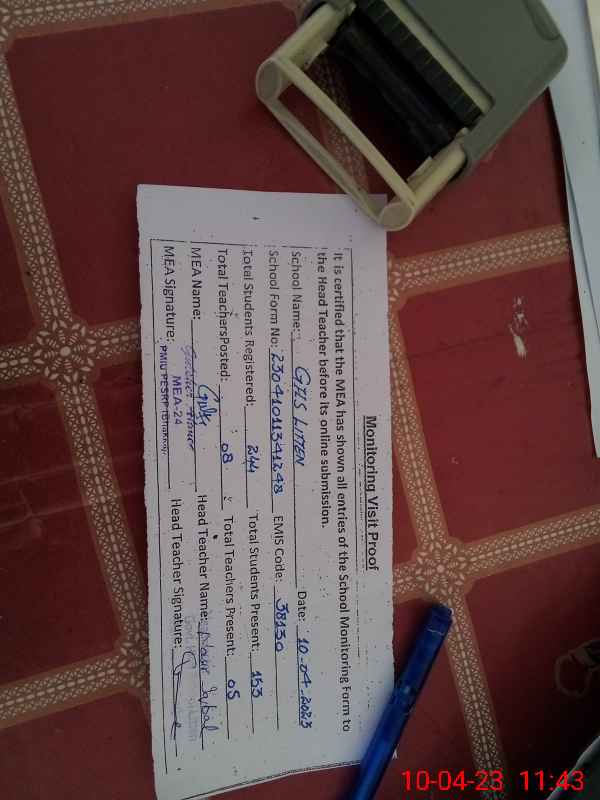 Monitoring Visit Proof
It is certified that the MEA has shown all entries of the School Monitoring Form to
the Head Teacher before its online submission.
School Name: GHS LITTEN Date: 10-04-2023
School Form No: 23041011341248 EMIS Code: 38130
Total Students Registered: 244 Total Students Present: 153
Total TeachersPosted: 08 Total Teachers Present: 05
MEA Name: Head Teacher Name: Iqbal
MEA-24
MEA Signature: PMIU PESRP Head Teacher Signature:
10-04-23 11:43